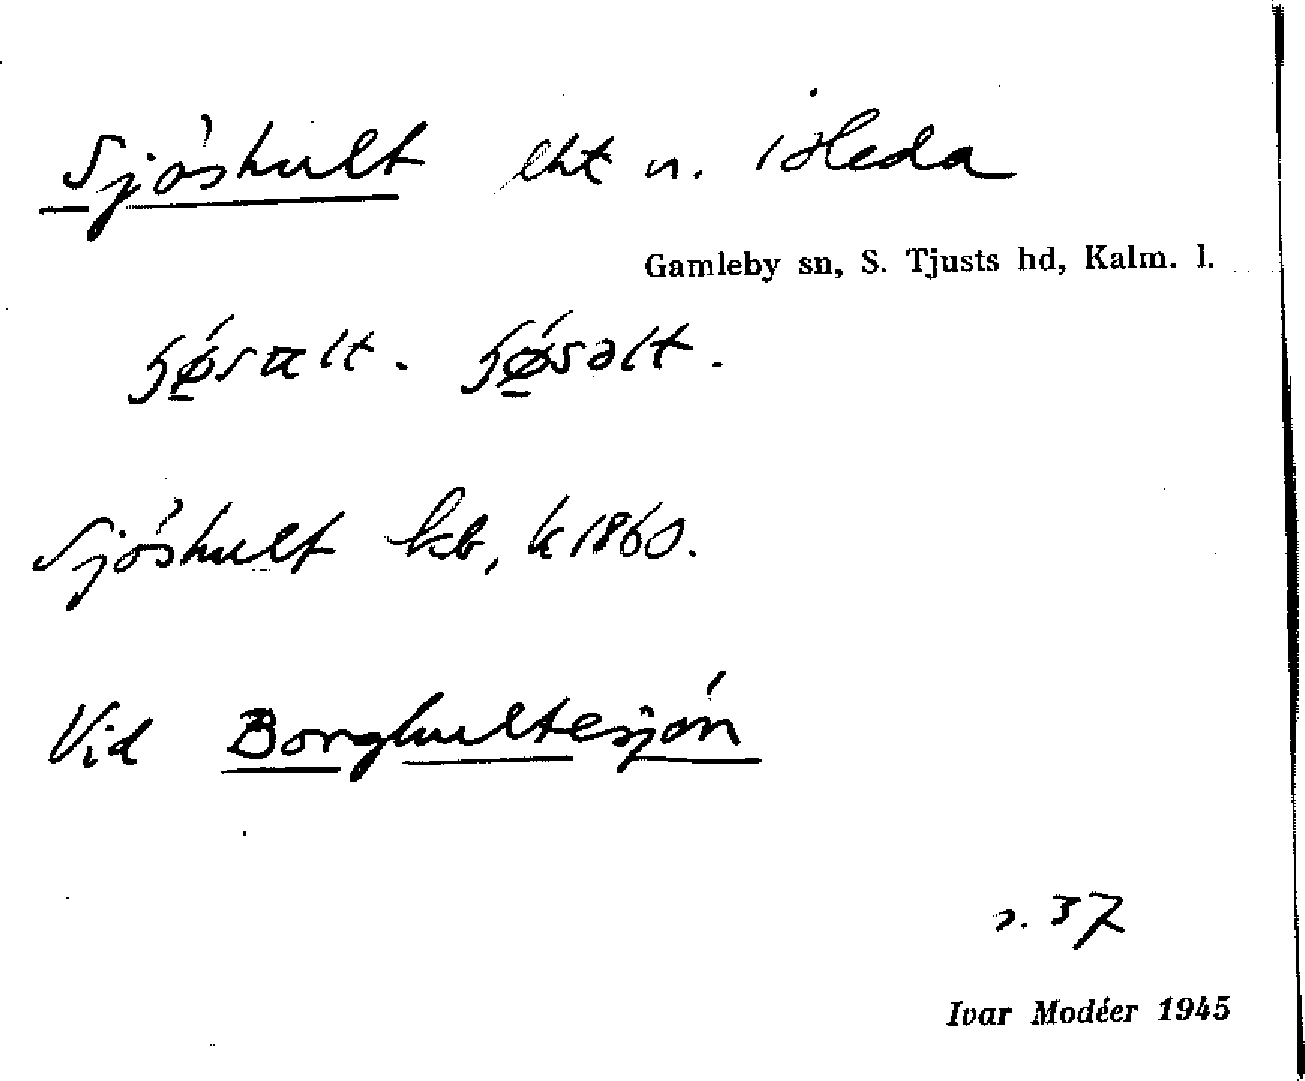 Sjöshult lht u. Heda
Gamleby sn, S. Tjusts hd, Kalm. l.
Sjöshult kb, k 1860.
Vid Borghultesjön
s. 37
Ivar Modéer 1945